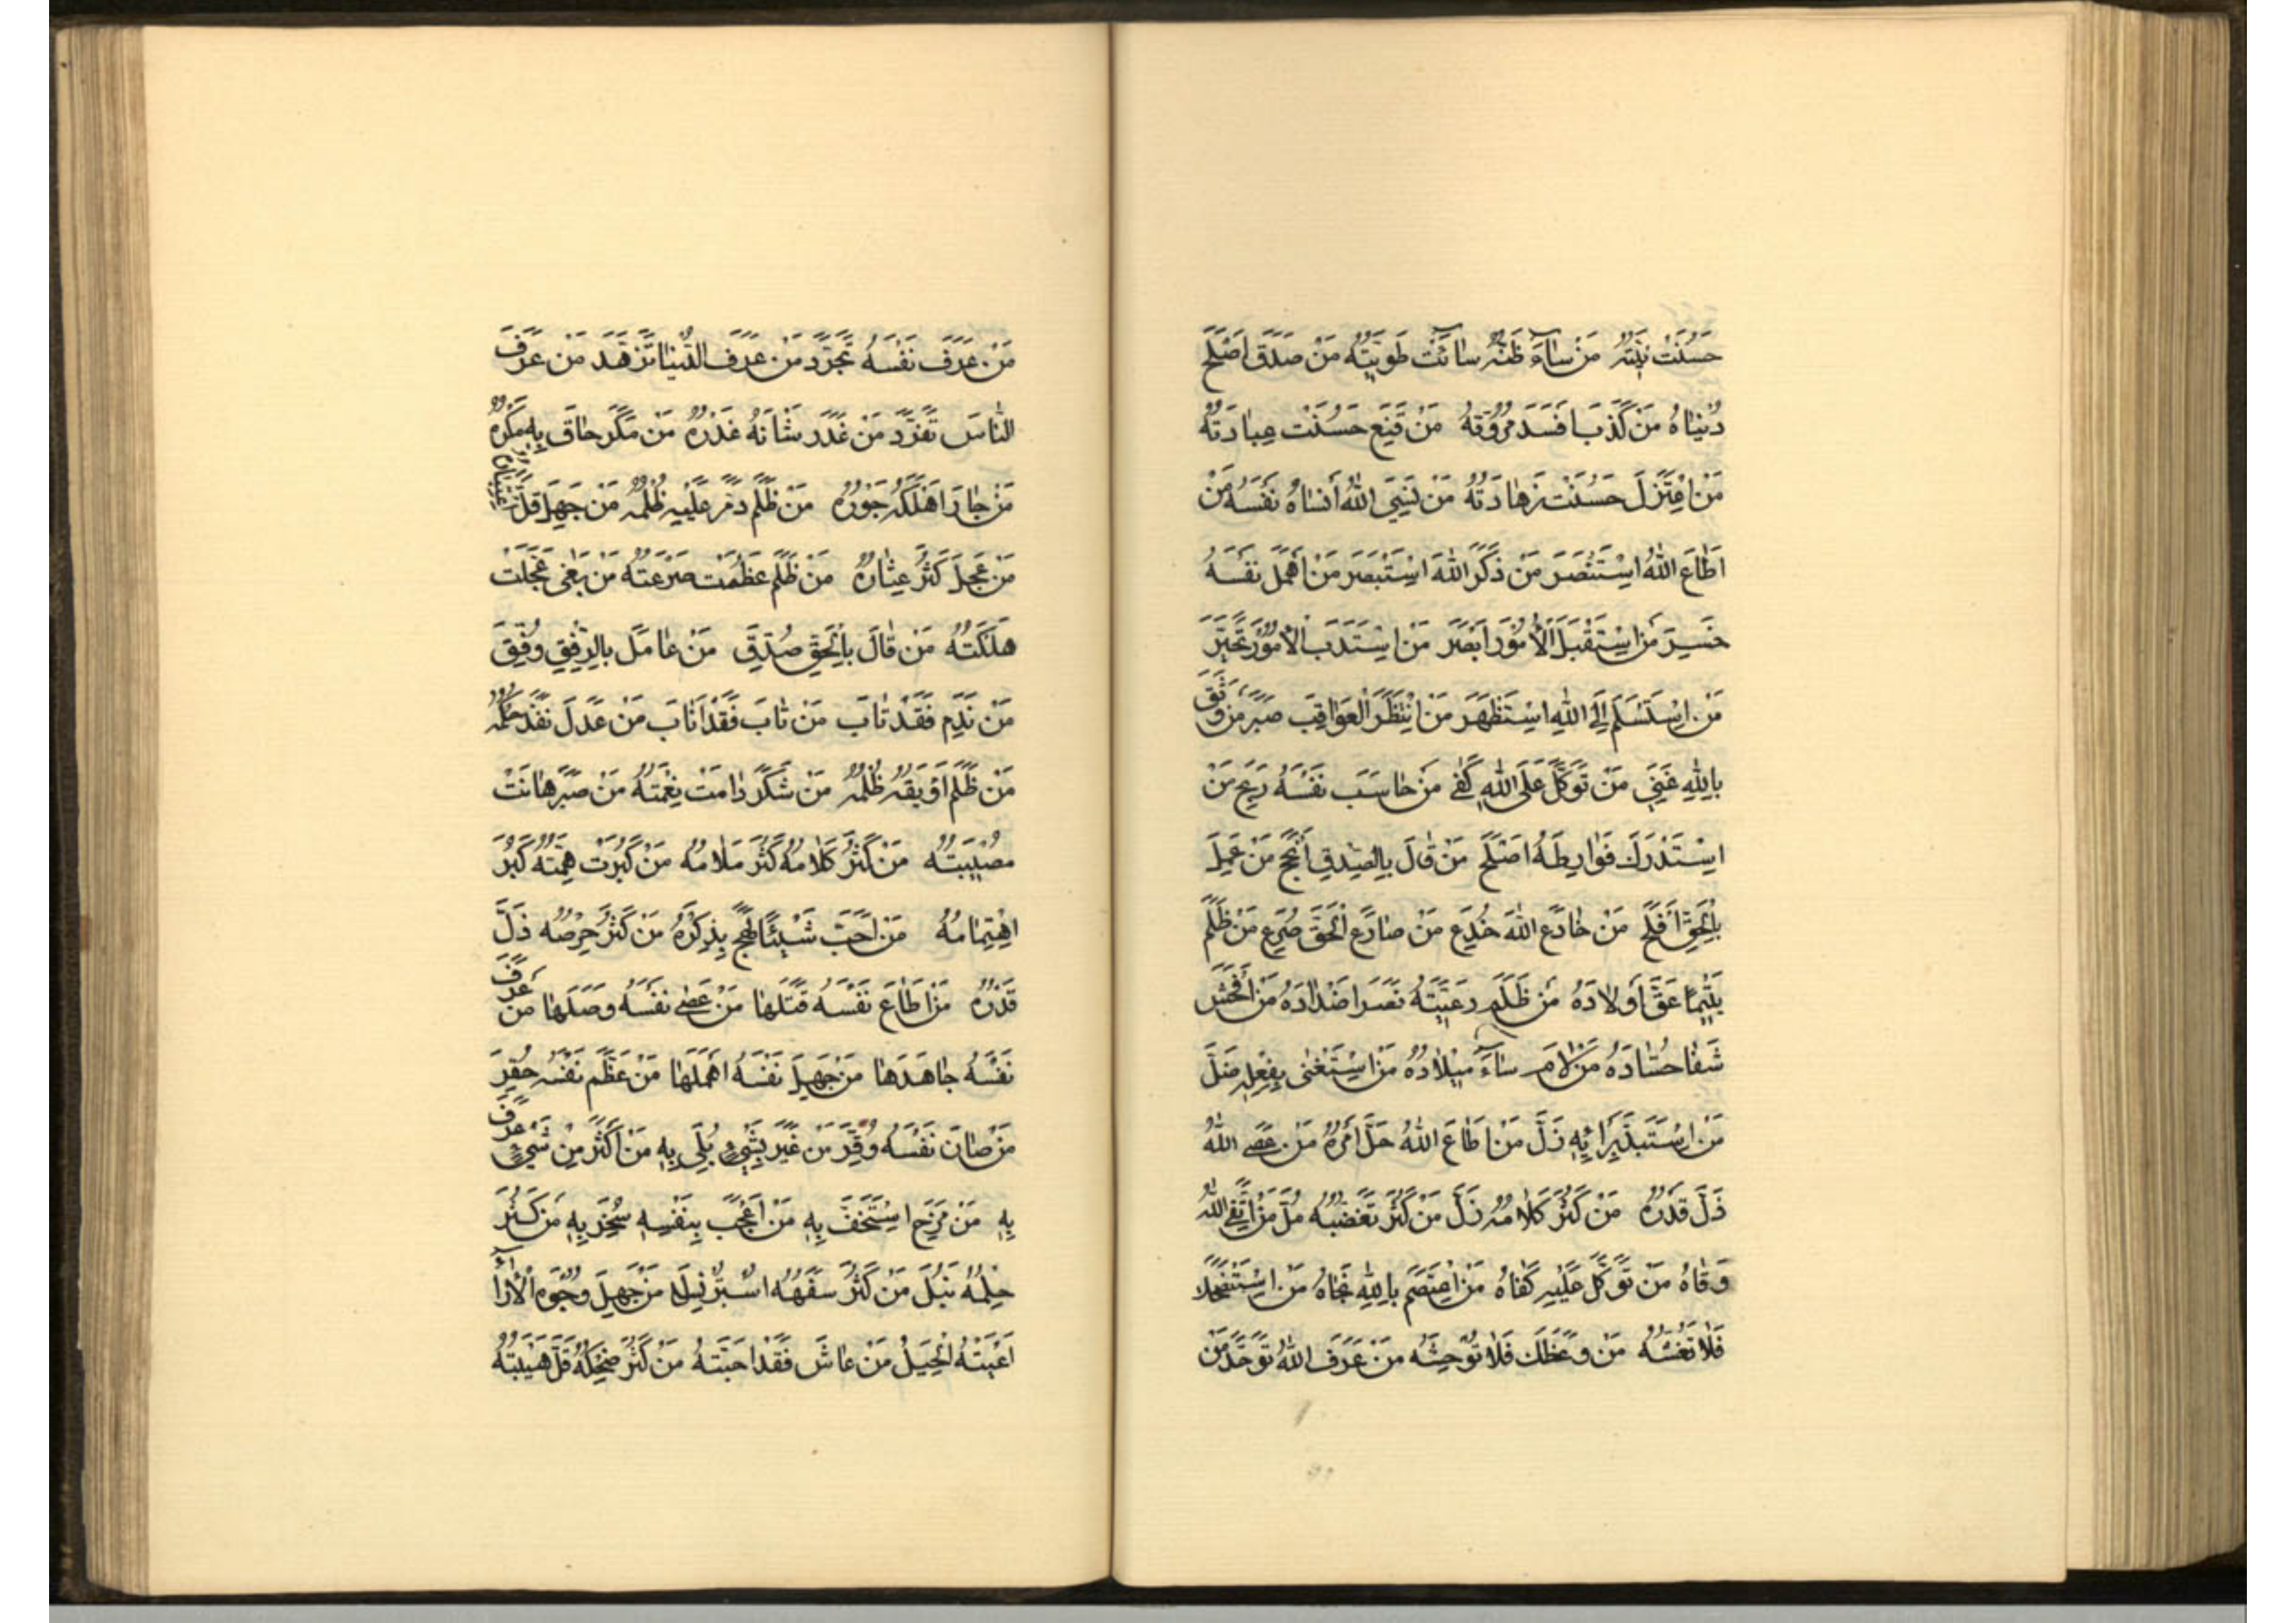 حَسُنَتْ نِيَّتُهُ مَنْ سَاءَ ظَنُّهُ سَائَتْ طَوِيَّتُهُ مَنْ صَدَقَ اَصْلَحَ
دُنْيَاهُ مَنْ كَذِبَ اَفْسَدَ مُرُوَّتَهُ مَنْ قَنِعَ حَسُنَتْ عِبَادَتُهُ
مَنْ اِعْتَزَلَ حَسُنَتْ زَهَادَتُهُ مَنْ نَسِيَ اللهَ أَنْسَاهُ نَفْسَهُ مَنْ
اَطَاعَ اللهَ اسْتَنْصَرَ مَنْ ذَكَرَ اللهَ اسْتَبْصَرَ مَنْ أَهْمَلَ نَفْسَهُ
خَسِرَ مَنِ اسْتَقْبَلَ الْأُمُورَ اَبْصَرَ مَنِ اسْتَدْبَرَ الْأُمُورَ تَحَيَّرَ
مَنِ اسْتَسْلَمَ اِلَى اللهِ اسْتَظْهَرَ مَنِ انْتَظَرَ الْعَوَاقِبَ صَبَرَ مَنْ وَثِقَ
بِاللهِ غَنِيَ مَنْ تَوَكَّلَ عَلَى اللهِ كُفِيَ مَنْ حَاسَبَ نَفْسَهُ رَبِحَ مَنْ
اسْتَدْرَكَ فَوَارِطَهُ اَصْلَحَ مَنْ قَالَ بِالصِّدْقِ أَنْجَحَ مَنْ عَمِلَ
بِالْحَقِّ أَفْلَحَ مَنْ خَادَعَ اللهَ خُدِعَ مَنْ صَارَعَ الْحَقَّ صُرِعَ مَنْ ظَلَمَ
يَتِيمًا عَقَّ أَوْلَادَهُ مَنْ ظَلَمَ رَعِيَّتَهُ نَصَرَ اَضْدَادَهُ مَنْ اَفْحَشَ
شَفَا حُسَّادَهُ مَنْ لَامَ سَاءَ مِيْلَادُهُ مَنِ اسْتَغْنٰى بِفِعْلِهِ ضَلَّ
مَنِ اسْتَبَدَّ بِرَايِهِ زَلَّ مَنْ اَطَاعَ اللهَ جَلَّ اَمْرُهُ مَنْ عَصَى اللهَ
ذَلَّ قَدْرُهُ مَنْ كَثُرَ كَلَامُهُ زَلَّ مَنْ كَثُرَ تَغَضُّبُهُ مُلَّ مَنِ اتَّقَى اللهَ
وَقَاهُ مَنْ تَوَكَّلَ عَلَيْهِ كَفَاهُ مَنِ اعْتَصَمَ بِاللهِ نَجَاهُ مَنِ اسْتَنْصَحَكَ
فَلَا تَغُشَّهُ مَنْ وَعَظَكَ فَلَا تُوحِشْهُ مَنْ عَرَفَ اللهَ تَوَحَّدَ مَنْ
مَنْ عَرَفَ نَفْسَهُ تَجَرَّدَ مَنْ عَرَفَ الدُّنْيَا تَزَهَّدَ مَنْ عَرَفَ
النَّاسَ تَفَرَّدَ مَنْ غَدَرَ شَانَهُ غَدْرُهُ مَنْ مَكَرَ حَاقَ بِهِ مَكْرُهُ
مَنْ جَارَ اَهْلَكَهُ جَوْرُهُ مَنْ ظَلَمَ دَمَّرَ عَلَيْهِ ظُلْمُهُ مَنْ جَهِلَ قَلَّ اعْتِبَارُهُ
مَنْ عَجِلَ كَثُرَ عِثَارُهُ مَنْ ظَلَمَ عَظُمَتْ صَرْعَتُهُ مَنْ بَغٰى عُجِّلَتْ
هَلَكَتُهُ مَنْ قَالَ بِالْحَقِّ صُدِّقَ مَنْ عَامَلَ بِالرِّفْقِ وُفِّقَ
مَنْ نَدِمَ فَقَدْ تَابَ مَنْ تَابَ فَقَدْ اَنَابَ مَنْ عَدَلَ نَفَذَ حُكْمُهُ
مَنْ ظَلَمَ اَوْبَقَهُ ظُلْمُهُ مَنْ شَكَرَ دَامَتْ نِعْمَتُهُ مَنْ صَبَرَ هَانَتْ
مُصِيبَتُهُ مَنْ كَثُرَ كَلَامُهُ كَثُرَ مَلَامُهُ مَنْ كَبُرَتْ هِمَّتُهُ كَبُرَ
اهْتِمَامُهُ مَنْ اَحَبَّ شَيْئًا لَهِجَ بِذِكْرِهِ مَنْ كَثُرَ حِرْصُهُ ذَلَّ
قَدْرُهُ مَنْ اَطَاعَ نَفْسَهُ قَتَلَهَا مَنْ عَصٰى نَفْسَهُ وَصَلَهَا مَنْ عَرَفَ
نَفْسَهُ جَاهَدَهَا مَنْ جَهِلَ نَفْسَهُ اَهْمَلَهَا مَنْ عَظَّمَ نَفْسَهُ حُقِّرَ
مَنْ صَانَ نَفْسَهُ وُقِّرَ مَنْ غَيَّرَ بِشَيْءٍ بُلِيَ بِهِ مَنْ اَكْثَرَ مِنْ شَيْءٍ عُرِفَ
بِهِ مَنْ مَزَحَ اسْتُخِفَّ بِهِ مَنْ اُعْجِبَ بِنَفْسِهِ سُخِرَ بِهِ مَنْ كَثُرَ
حِلْمُهُ نَبُلَ مَنْ كَثُرَ سَفَهُهُ اسْتُرْذِلَ مَنْ جَهِلَ وُجُوهَ الْآرَاءِ
اَعْيَتْهُ الْحِيَلُ مَنْ عَاشَ فَقَدَ اَحِبَّتَهُ مَنْ كَثُرَ ضِحْكُهُ قَلَّ هَيْبَتُهُ